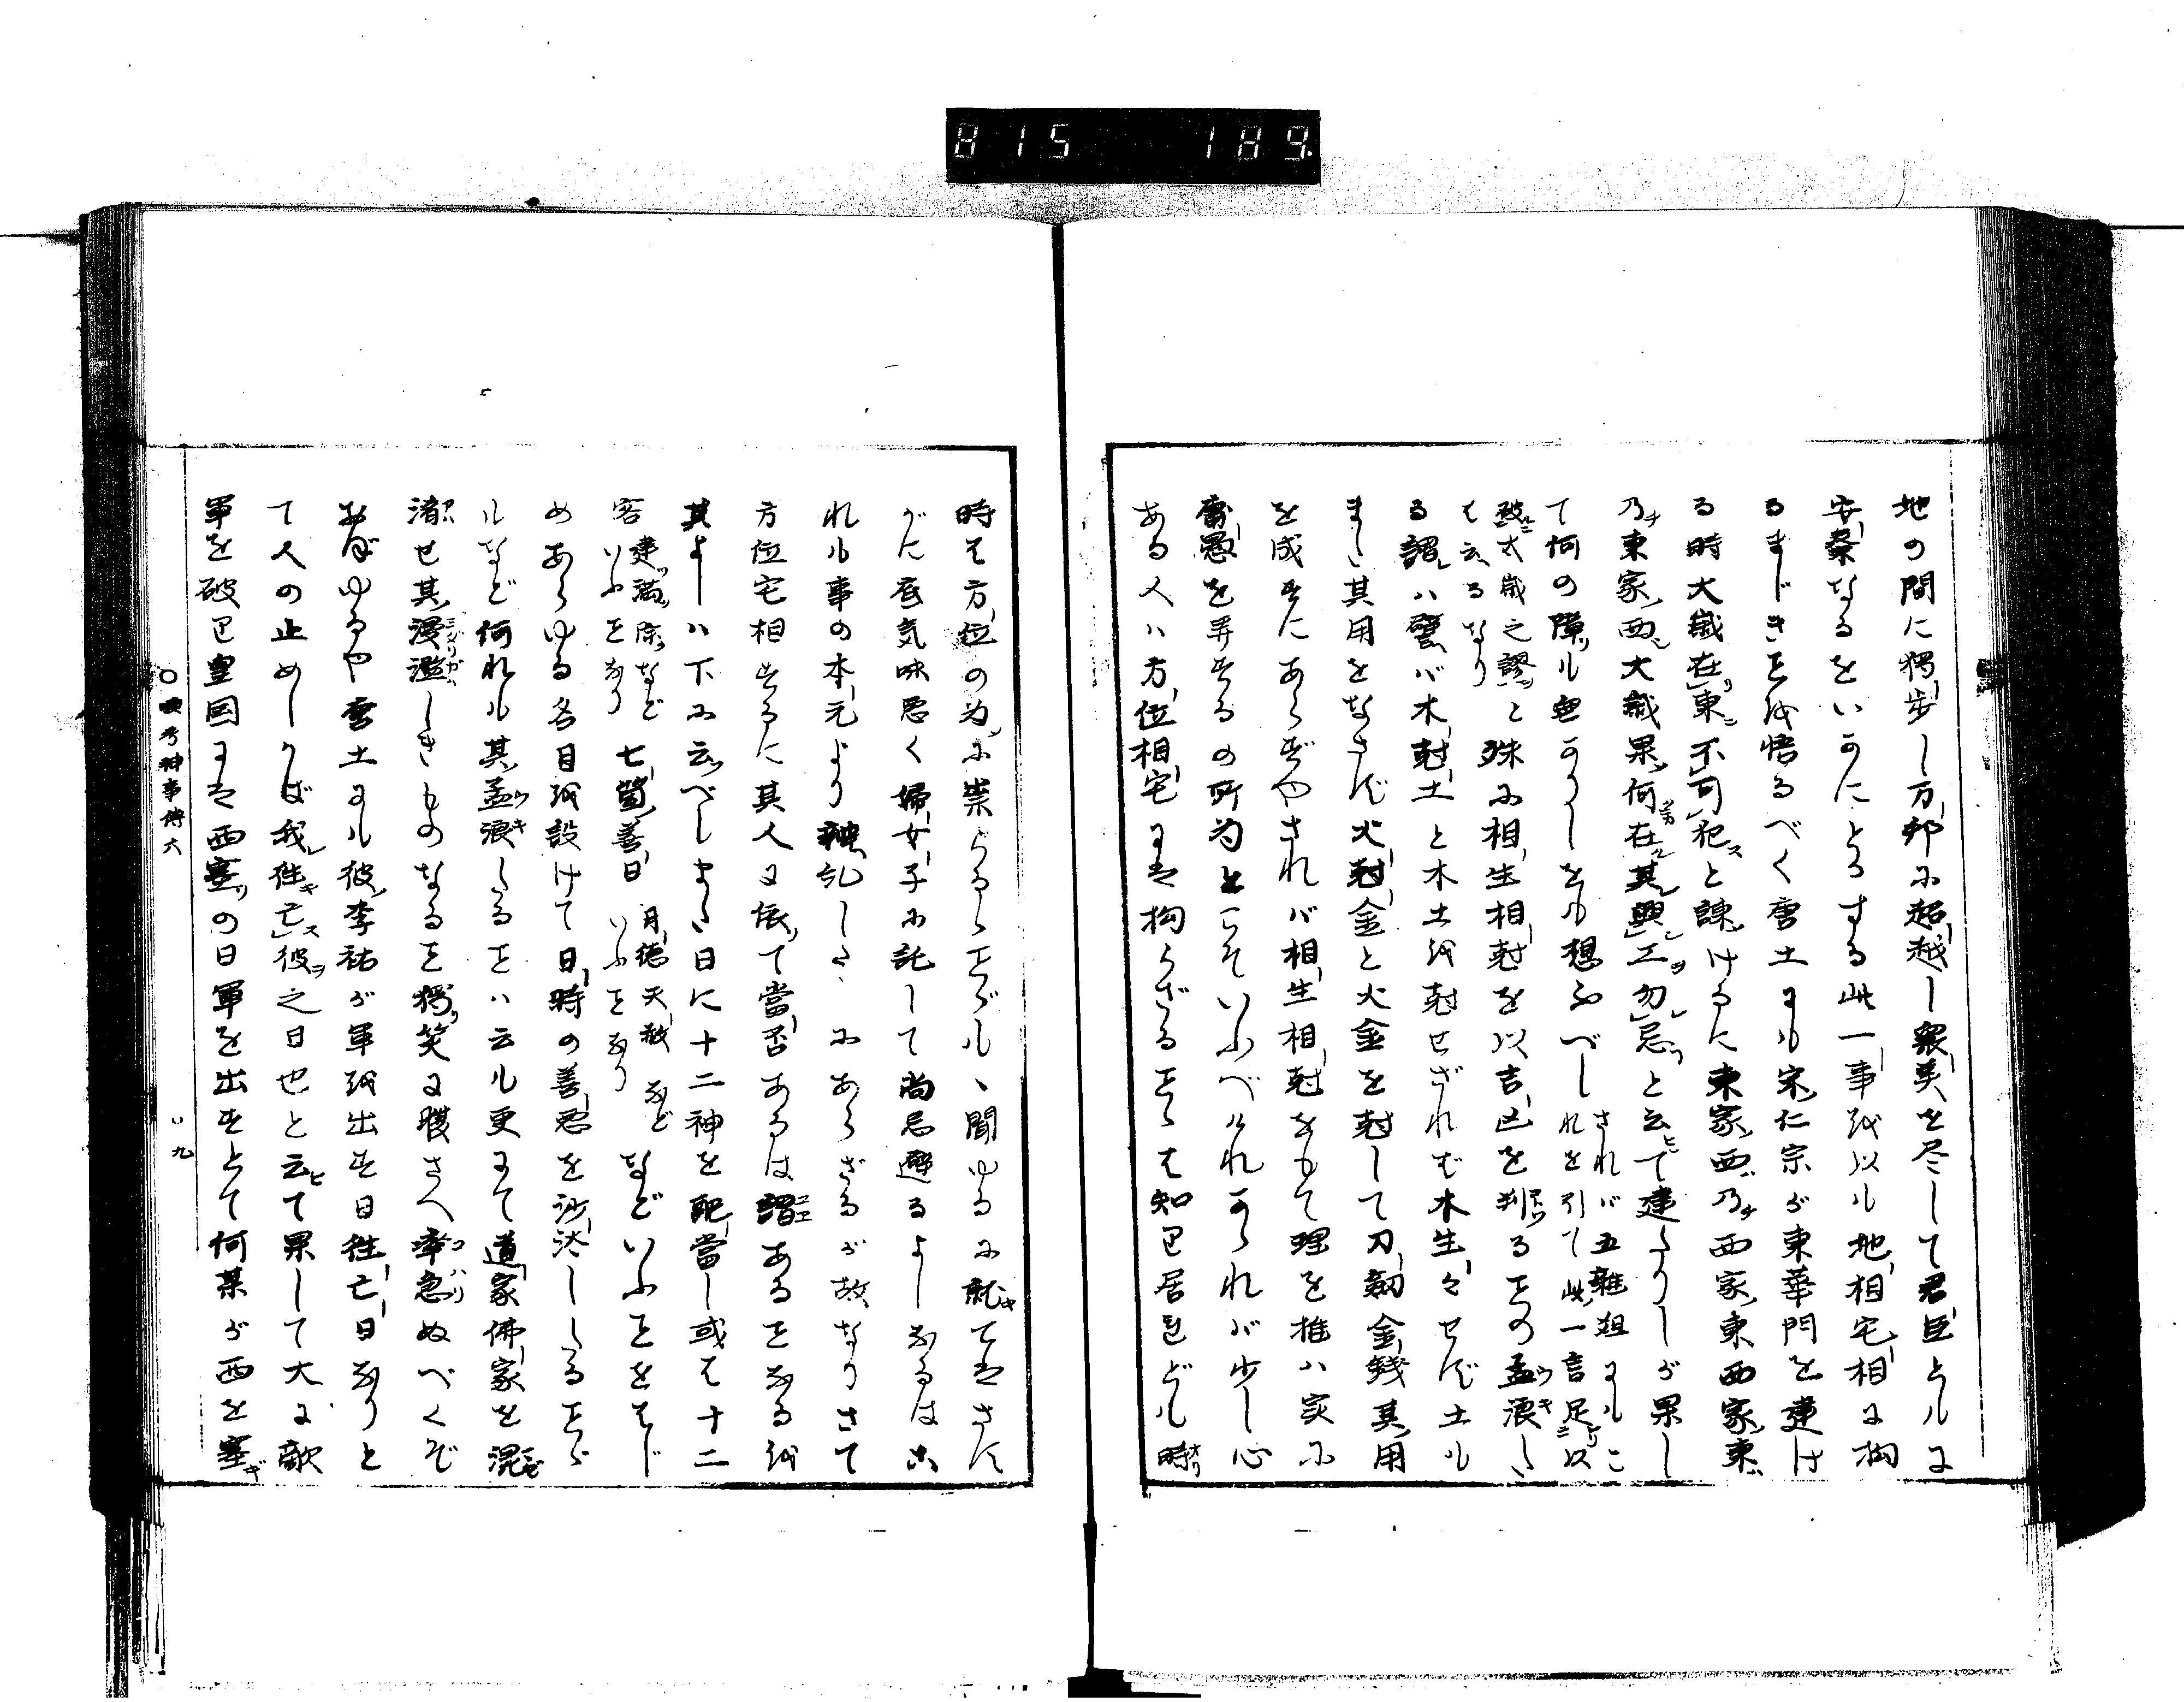 815 189
地の間に獨歩し万邦に超越し衆美を尽して君臣ともに
安泰なるをいかにとかする此一事を以も地相宅相に拘
るまじきことを悟るべく唐土にも宋仁宗が東華門を建け
る時大歳在東不可犯と諫けるに東家西乃西家東西家東
乃東家西大歳果何在其興工勿忌と云て建たりしが果し
て何の障も無かりしをも想ふべし されバ五雑俎にもこ
れを引て此一言足以
破大歳之謬と
は云るなり 殊に相生相尅を以吉凶を判ることの孟浪た
る謂ハ譬バ木尅土と木土を尅せざれば木生々せず土も
また其用をなさず火尅金と火金を尅して刀剣金銭其用
を成すにあらずやされバ相生相尅をもて理を推ハ実に
庸愚を弄するの所為とこそいふべけれかゝれバ少し心
ある人ハ方位相宅には拘らざることゝは知り居れども時
時は方位の為に祟らるゝことども、聞ゆるに就てはさす
がに底気味悪く婦女子に託して尚忌避るよしなるはこ
れも事の本元より神乱したゝにあらざるが故なりさて
方位宅相するに其人に依て當否あるは謂あることなるを
其よしハ下に云べしまた日に十二神を配當し或は十二
客 建満除など
いふことなり 七箇善日 月徳天赦など
いふことなり などいふことをはじ
めあらゆる名目を設けて日時の善悪を沙汰したることゞ
もなど何れも其孟浪たることハ云も更にて道家佛家を混
淆せ其漫濫しきものなること獨笑に腹さへ痺急ぬべくぞ
おぼゆるや唐土にも彼李祐が軍を出す日往亡日なりと
て人の止めしかば我往亡彼之日也と云て果して大に敵
軍を破り皇国には西塞の日軍を出すとて何某が西を塞
神事傳六
九